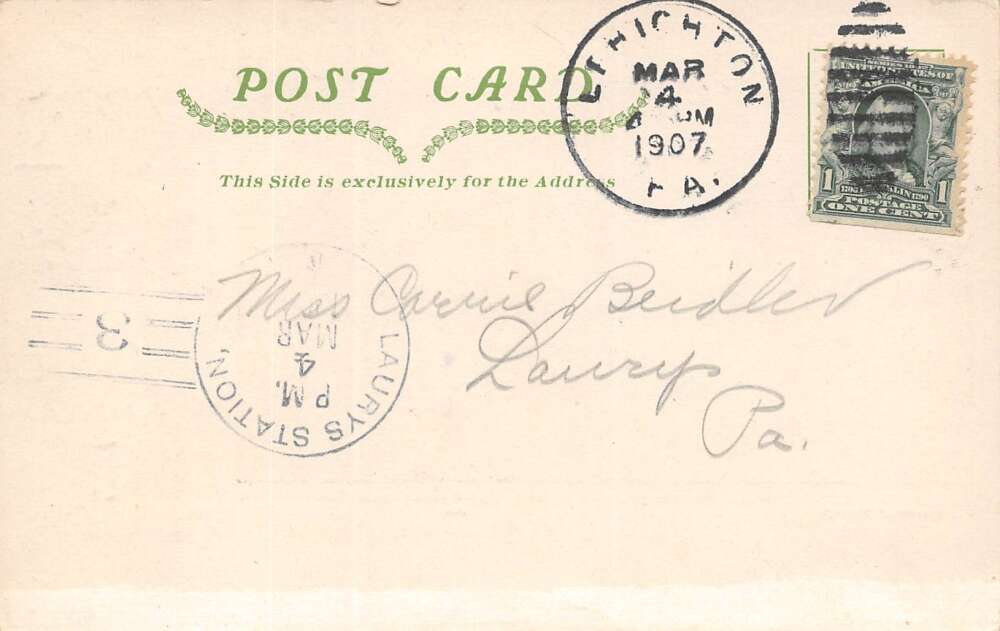 POST CARD
This Side is exclusively for the Address
LEHIGHTON
MAR
4
PM
1907
PA.
SERIES 1902
UNITED STATES OF
AMERICA
1 FRANKLIN 1790 1
POSTAGE
ONE CENT
Miss Carrie Beidler
Laurys
Pa.
LAURYS STATION,
MAR
4
P M.
3